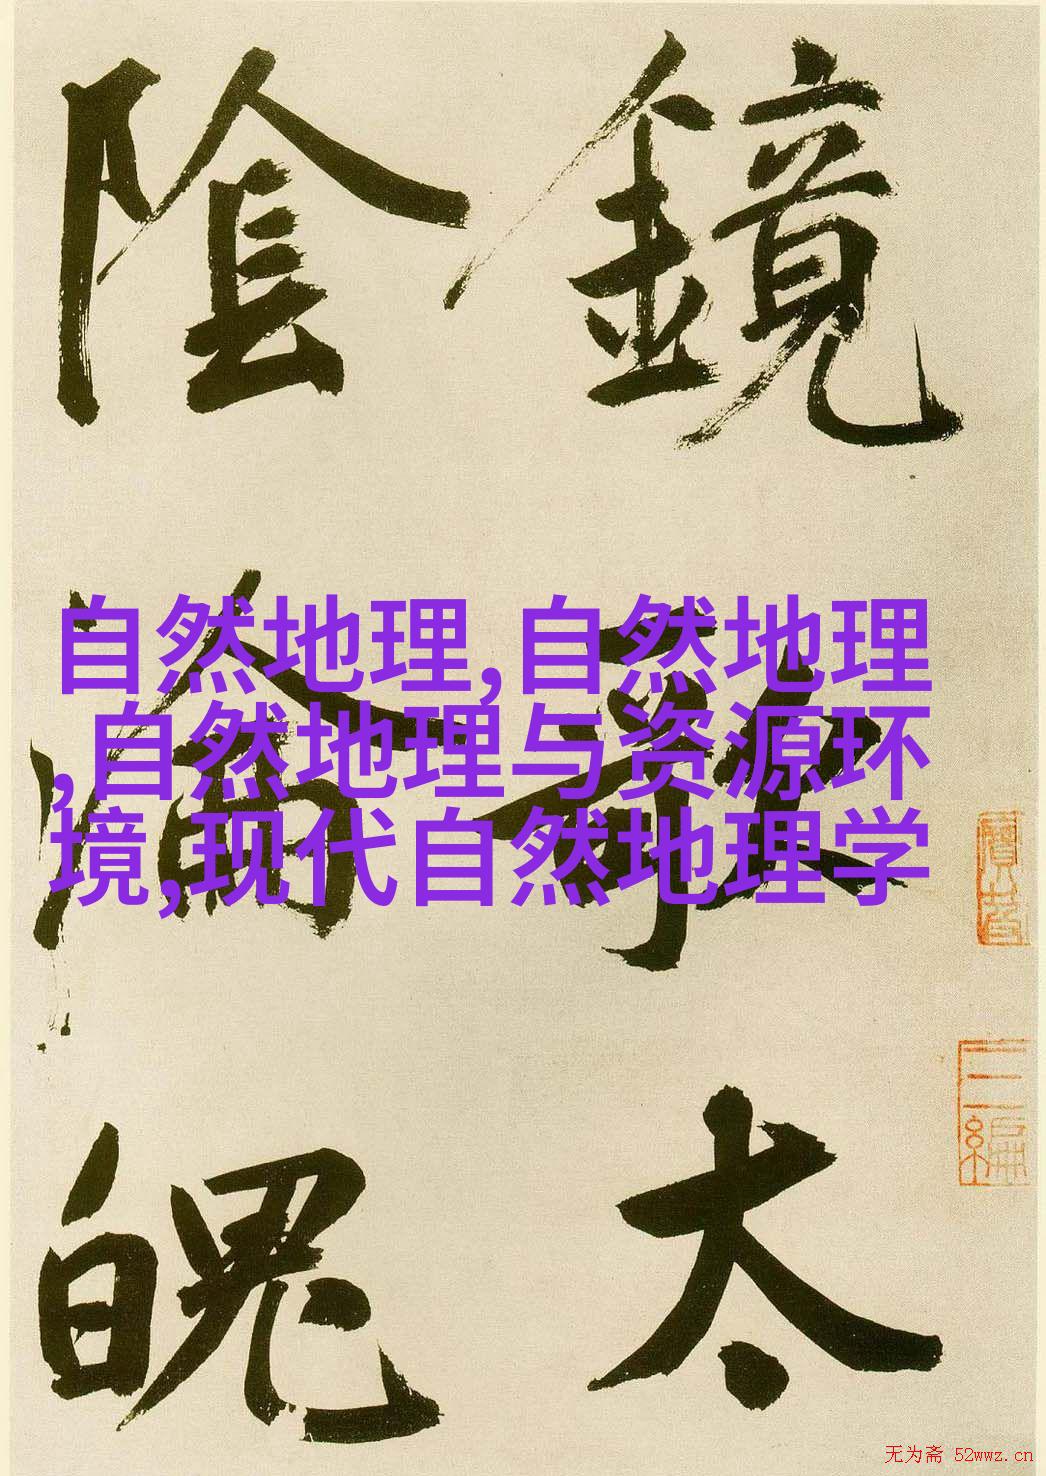 鏡
太
陰
魄
自然地理,自然地理
,自然地理与资源环
境,现代自然地理学
三編
无为斋 52wwz.cn